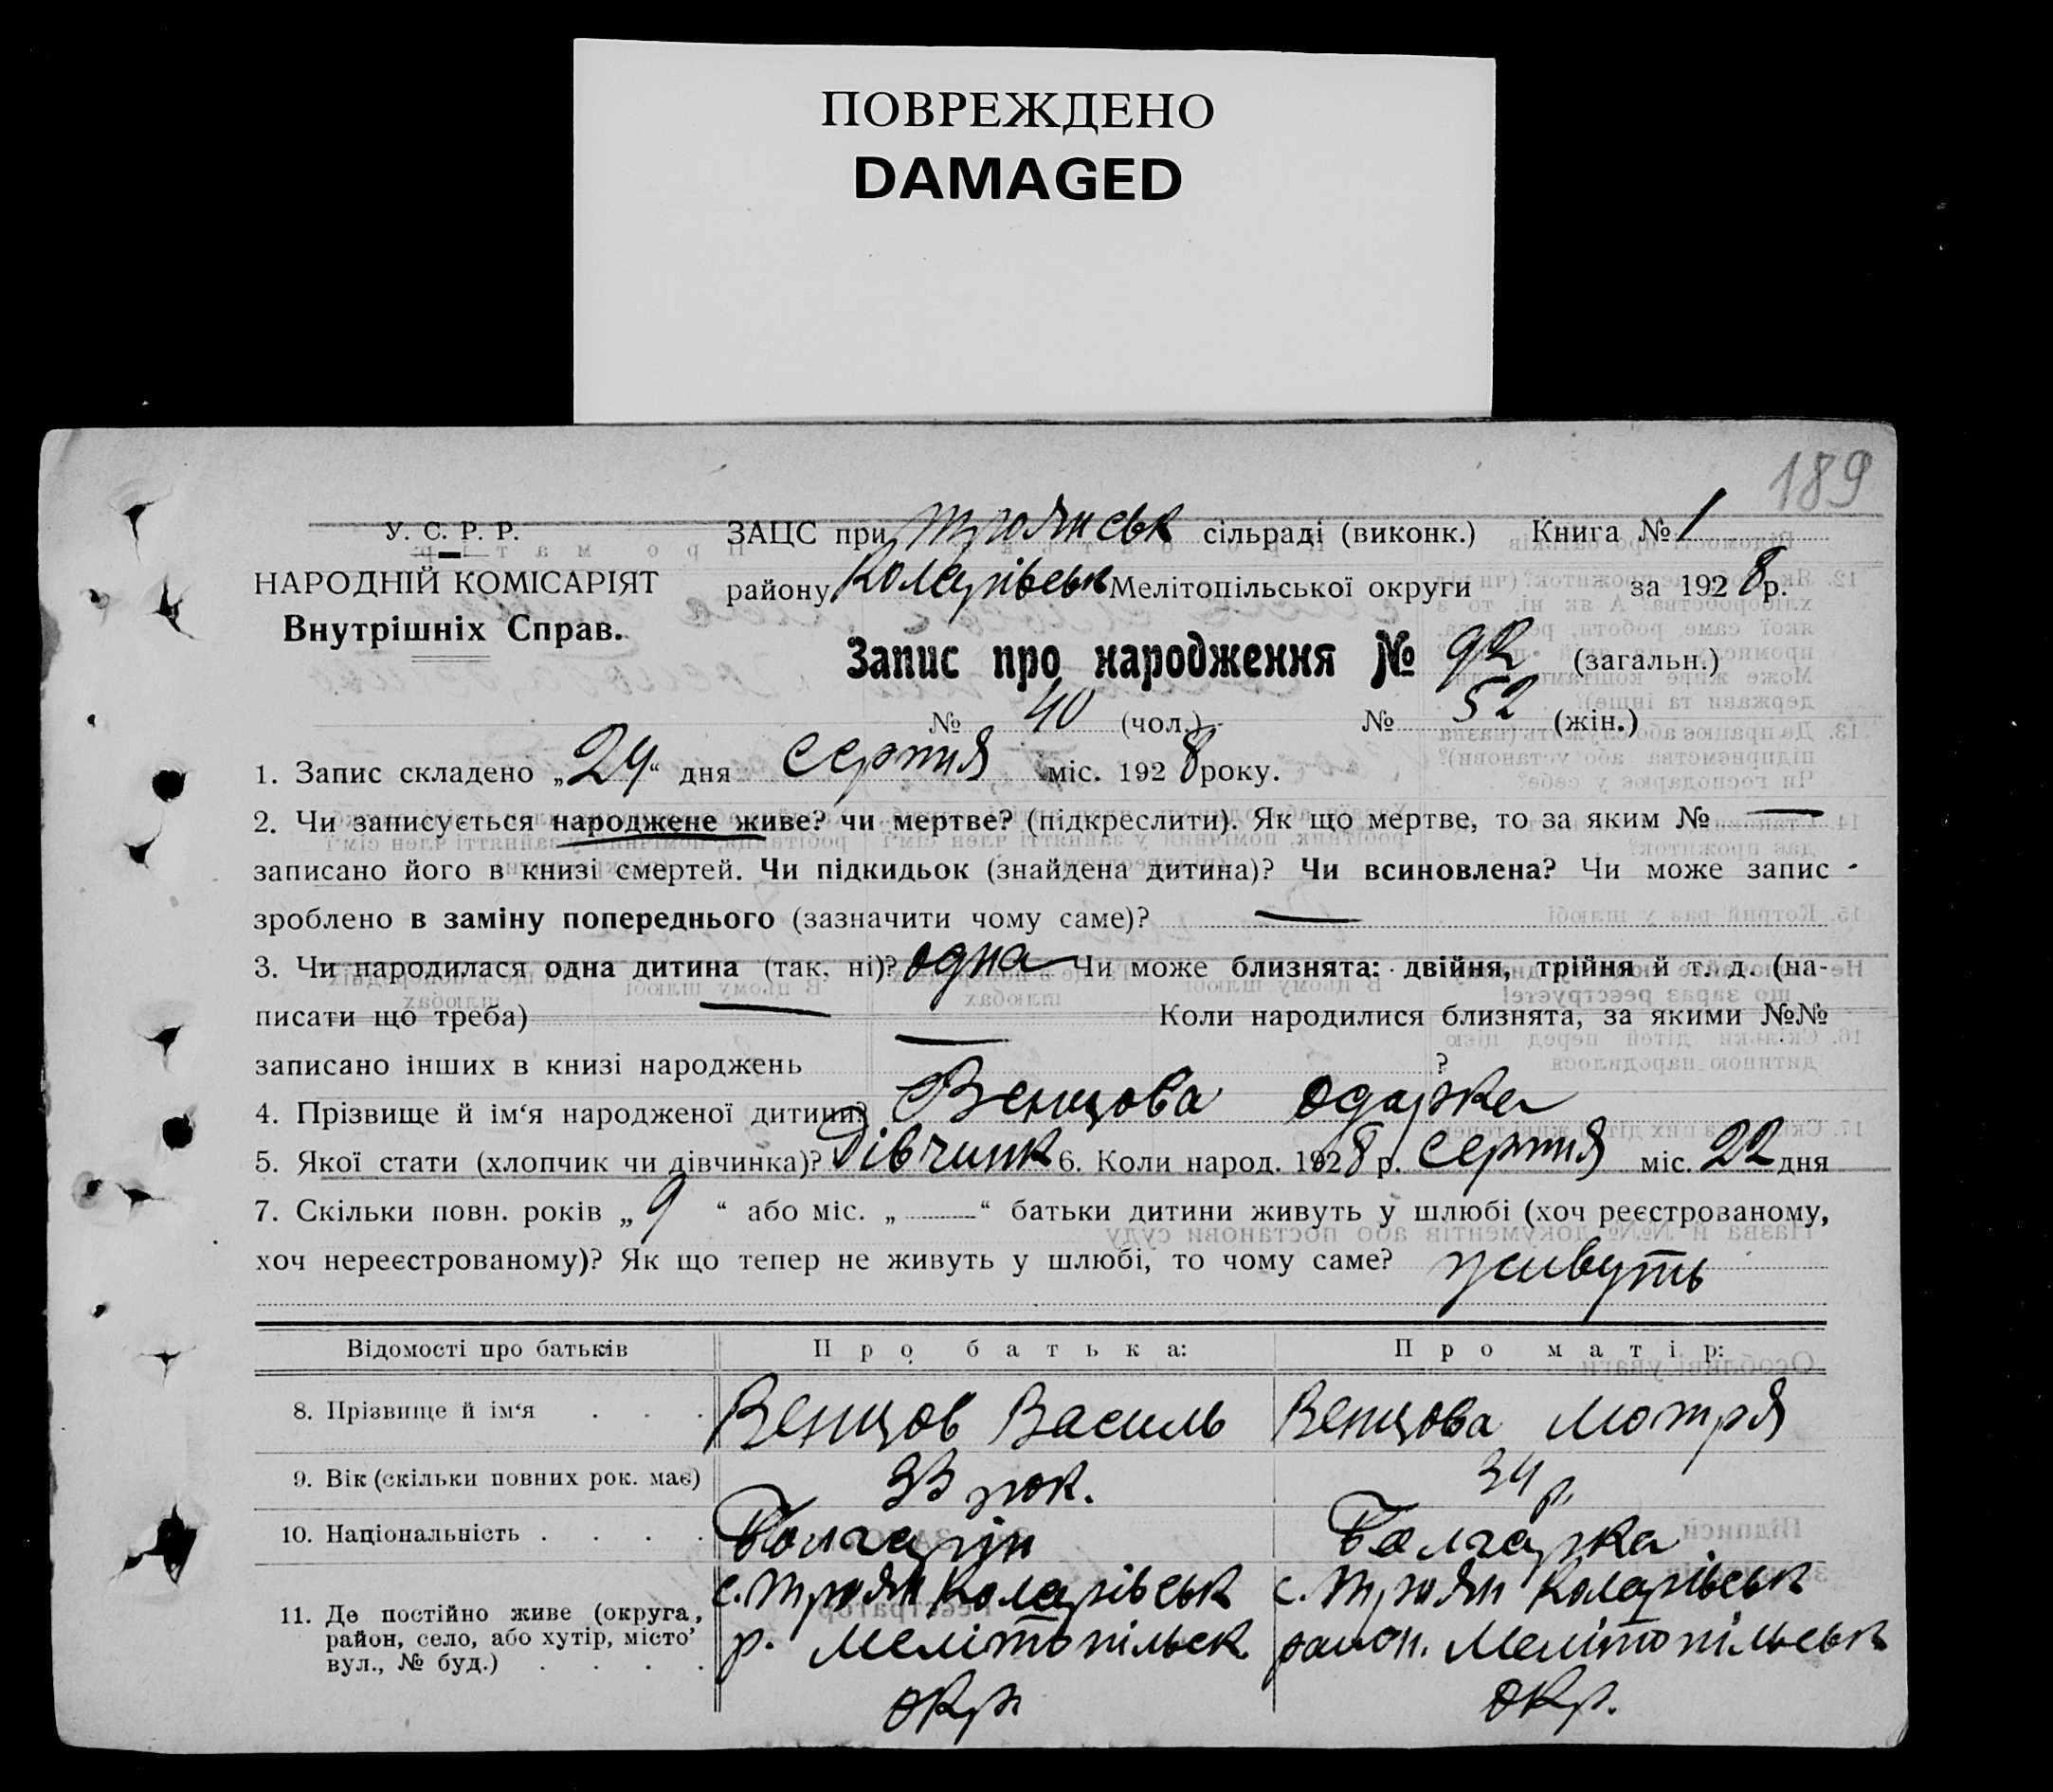 ПОВРЕЖДЕНО
DAMAGED
189
У. С. Р. Р.
НАРОДНІЙ КОМІСАРІЯТ
Внутрішніх Справ.
ЗАЦС при Троянськ сільраді (виконк.) Книга № 1
району Коларівськ Мелітопільської округи за 1928 р.
Запис про народження № 92 (загальн.)
№ 40 (чол.) № 52 (жін.)
1. Запис складено „24“ дня серпня міс. 1928 року.
2. Чи записується народжене живе? чи мертве? (підкреслити). Як що мертве, то за яким № —
записано його в книзі смертей. Чи підкидьок (знайдена дитина)? Чи всиновлена? Чи може запис -
зроблено в заміну попереднього (зазначити чому саме)? —
3. Чи народилася одна дитина (так, ні)? одна Чи може близнята: двійня, трійня й т. д. (на-
писати що треба) — Коли народилися близнята, за якими №№
записано інших в книзі народжень — ?
4. Прізвище й ім‘я народженої дитини? Венцова Одарка
5. Якої стати (хлопчик чи дівчинка)? Дівчинк 6. Коли народ. 1928 р. серпня міс. 22 дня
7. Скільки повн. років „9“ або міс. „—“ батьки дитини живуть у шлюбі (хоч реєстрованому,
хоч нереєстрованому)? Як що тепер не живуть у шлюбі, то чому саме? живуть
Відомості про батьків Про батька: Про матір:
8. Прізвище й ім‘я . . . Венцов Василь Венцова Мотря
9. Вік (скільки повних рок. має) 33 рок. 34 р.
10. Національність . . . . Болгарін Болгарка
11. Де постійно живе (округа, район, село, або хутір, місто, вул., № буд.) . . . .
с. Троян Коларівськ
р. Мелітопільск
окр.
с. Троян Коларівськ
район. Мелітопільськ
окр.